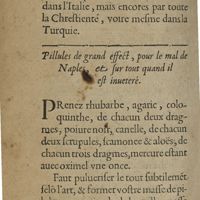 dans l'Italie, mais encores par toute
la Chrestienté, voire mesme dans la
Turquie.
Pillules de grand effect, pour le mal de
Naples, et sur tout quand il
est inueteré.
PRenez rhubarbe, agaric, colo-
quinthe, de chacun deux drag-
mes, poiure noir, canelle, de chacun
deux scrupules, scamonee & aloës, de
chacun trois dragmes, mercure estant
auec oximel vne once.
Faut puluerifer le tout subtilemēt
selō l'art, & former vostre masse de pi-